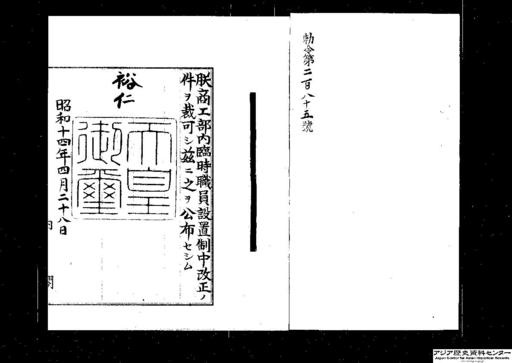 勅令第二百八十五號
朕商工部內臨時職員設置制中改正ノ
件ヲ裁可シ茲ニ之ヲ公布セシム
裕仁
天皇
御璽
昭和十四年四月二十八日
内閣
アジア歴史資料センター
Japan Center for Asian Historical Records